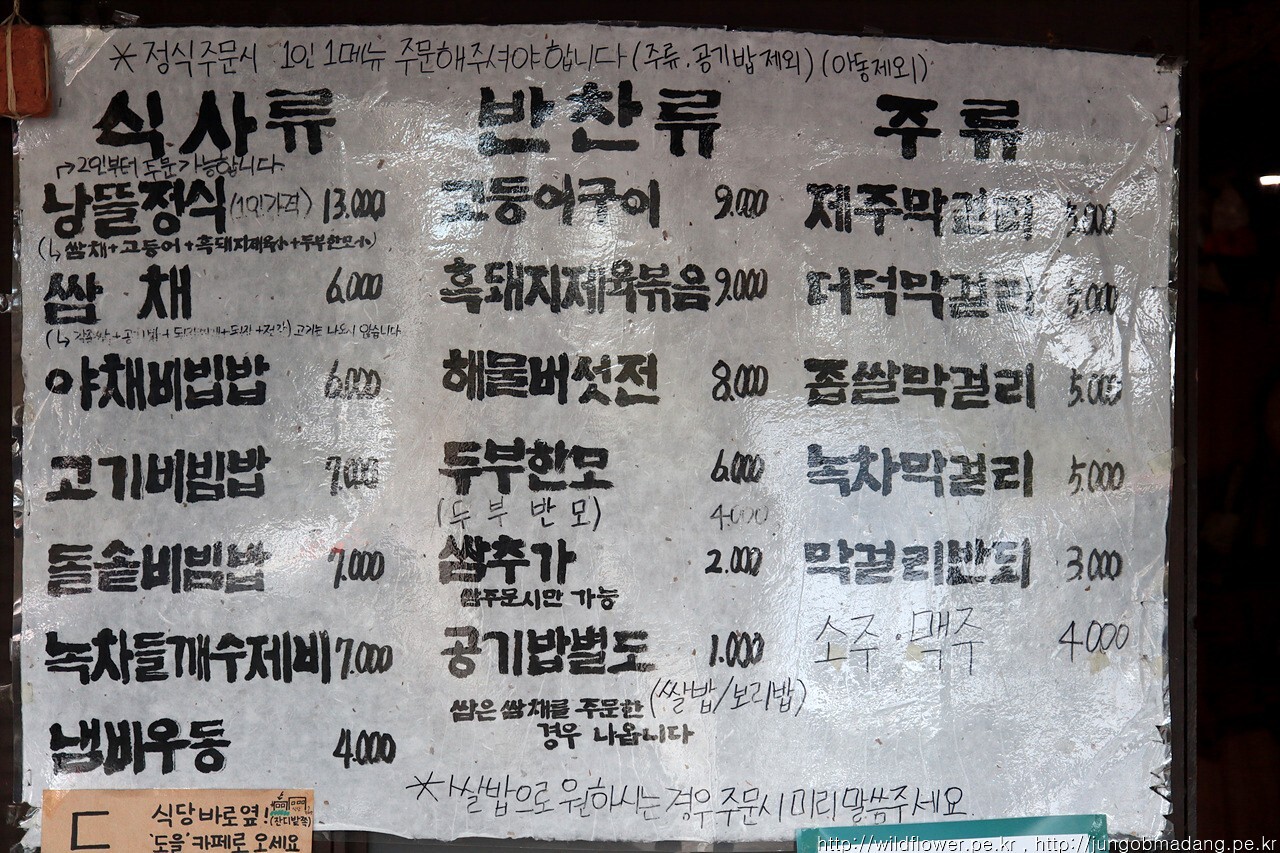 * 정식주문시 1인 1메뉴 주문해주셔야 합니다 (주류.공기밥 제외) (아동제외)
식사류
→2인부터 주문가능합니다.
낭뜰정식(1인가격) 13.000
(↳ 쌈채+고등어+흑돼지제육小+두부한모小)
쌈 채 6.000
고기는 나오시 않습니다
야채비빔밥 6.000
고기비빔밥 7.000
돌솥비빔밥 7.000
녹차들깨수제비 7.000
냄비우동 4.000
반찬류
고등어구이 9.000
흑돼지제육볶음 9.000
해물버섯전 8.000
두부한모 6.000
(두부반모) 4.000
쌈추가 2.000
쌈주문시만 가능
공기밥별도 1.000
(쌀밥/보리밥)
쌈은 쌈채를 주문한
경우 나옵니다
주류
제주막걸리 5.000
더덕막걸리 5.000
좁쌀막걸리 5.000
녹차막걸리 5.000
막걸리반되 3.000
소주.맥주 4.000
* 쌀밥으로 원하시는 경우 주문시 미리 말씀주세요.
식당 바로 옆! (잔디밭쪽)
'도을' 카페로 오세요
http://wildflower.pe.kr , http://jungobmadang.pe.kr